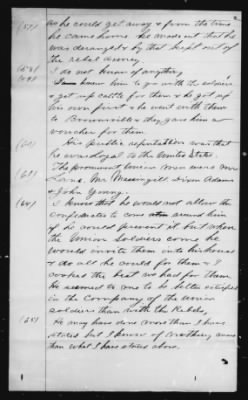 (57) as he could get away & from the time
he came home he made out that he
was deranged & by that kept out of
the rebel army.
I do not know of anything
I saw him to go with the soldiers
& get up cattle for them & he got up
his own first & he went with them
to Brownsville & they gave him a
voucher for them
His public reputation was that
he was loyal to the United States.
(61) The prominent Union men were Mr
Lane, Mr. Massingill Dixon Adams
& John Young.
I know that he would not allow the
confederates to come around him
if he could prevent it but when
the Union soldiers come he
would invite them into his house
& do all he could for them & I
cooked the best we had for them.
He seemed to me to be better satisfied
in the Company of the union
soldiers than with the Rebels,
He may have done more than I have
stated but I know of nothing more
than what I have stated above.